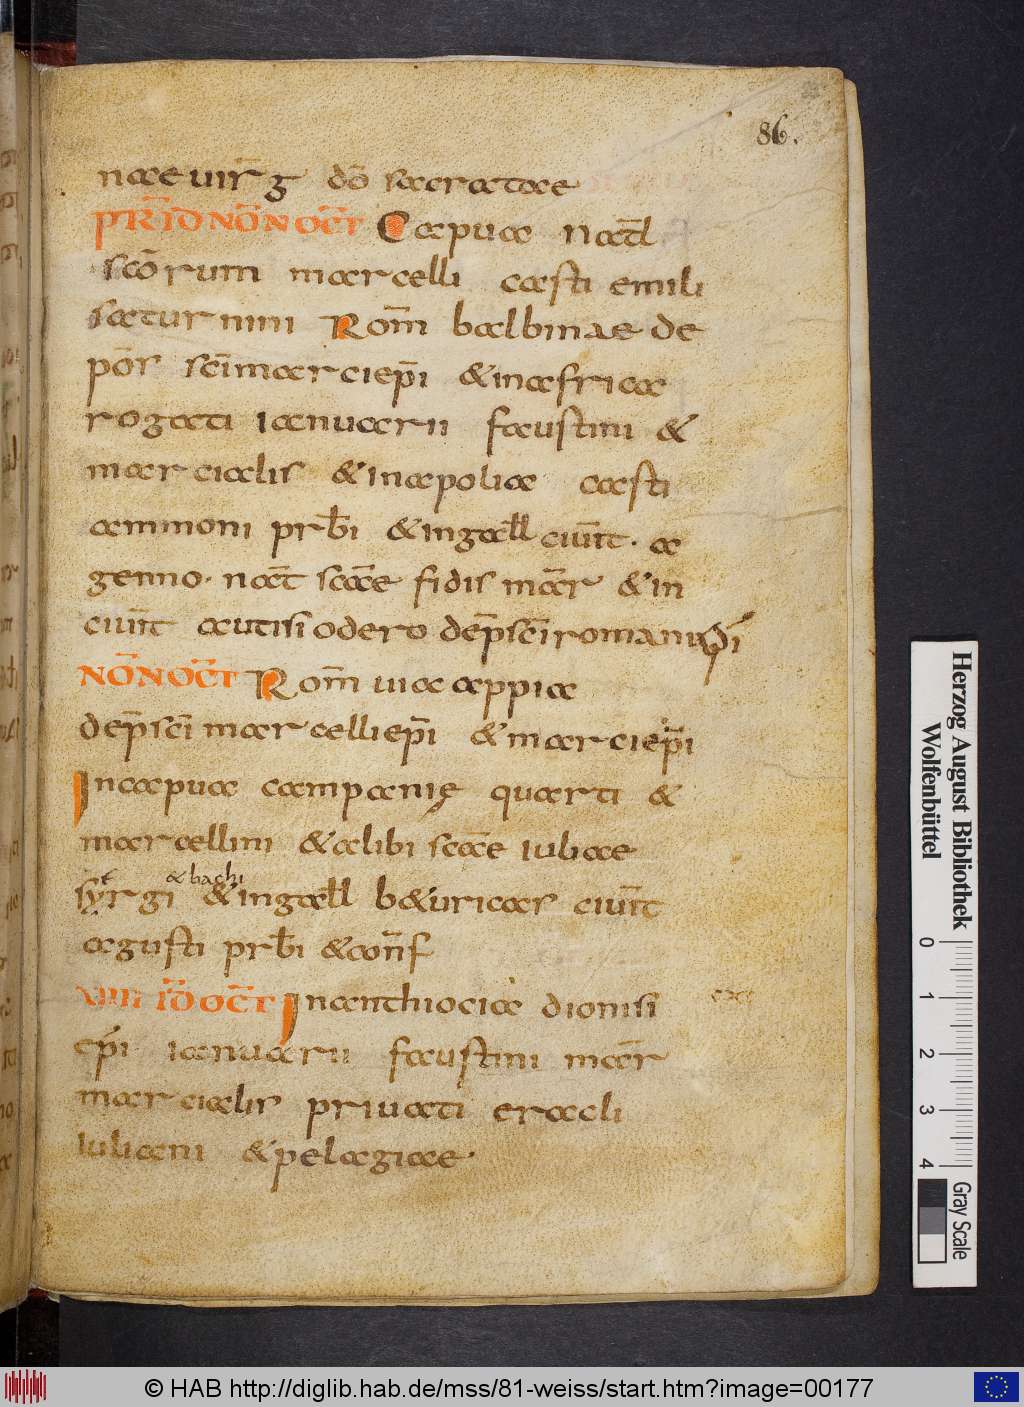 86.
nae uir̄g dō sacratae
PR̄ID NŌN OC̄T Capuae nat̄l
scōrum marcelli casti emili
saturnini Rom̄ balbinae de
pōs sc̄i marci ep̄i & in africa
rogati ianuarii faustini &
marcialis & in apolia casti
ammoni prb̄i & in gall̄ ciuīt. a
genno. nat̄ scāe fidis mar̄ & in
ciuīt autisioderо dep̄ sc̄i romani ep̄i
NŌN OC̄T Rom̄ uia appia
dep̄ sc̄i marcelli ep̄i & marci ep̄i
In capua campanię quarti &
marcellini & alibi scāe iuliae
& bachi
syrgi & in gall̄ b&uricas ciuīt
agusti prb̄i & conf̄
VIII ID̄ OC̄T In anthiocia dionisi
ep̄i ianuarii faustini mar̄
marcialis priuati eracli
iuliani & pelagiae.
Herzog August Bibliothek
Wolfenbüttel
0 1 2 3 4
Gray Scale
© HAB http://diglib.hab.de/mss/81-weiss/start.htm?image=00177